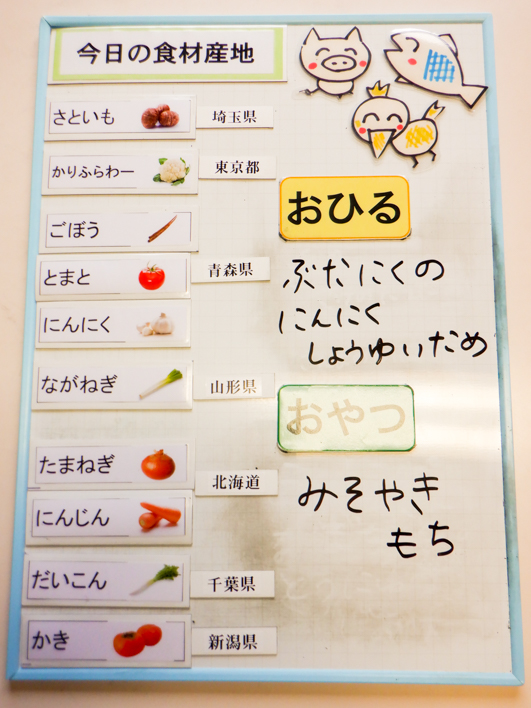 今日の食材産地
さといも 埼玉県
かりふらわー 東京都
ごぼう
とまと 青森県
にんにく
ながねぎ 山形県
たまねぎ 北海道
にんじん
だいこん 千葉県
かき 新潟県
おひる
ぶたにくの
にんにく
しょうゆいため
おやつ
みそやき
もち